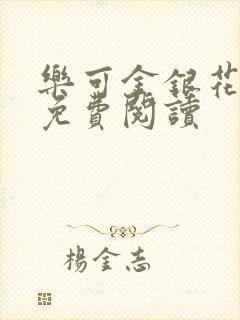 樂可金銀花
免費閱讀
楊金志